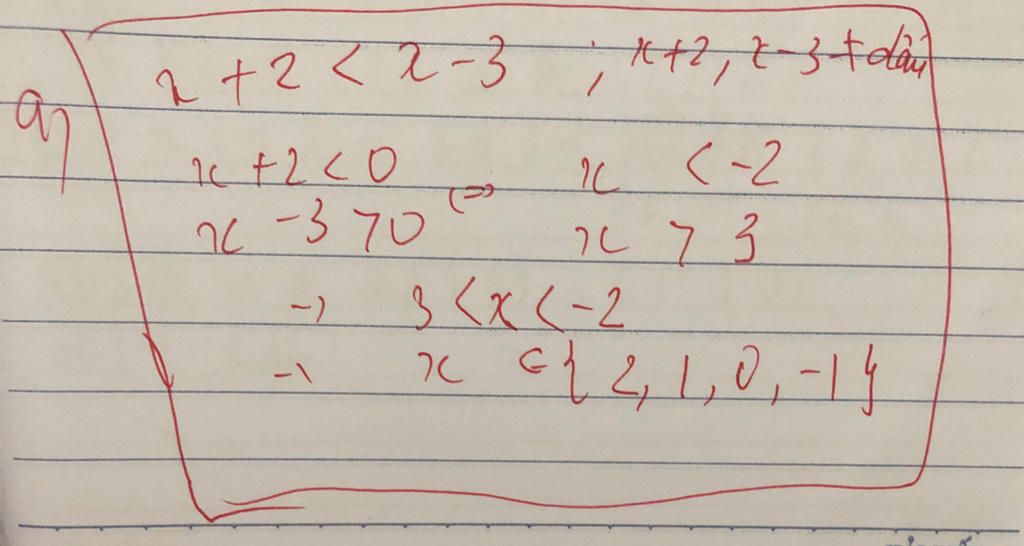 a)
x + 2 < x - 3 ; x+2, x-3 ≠ dấu
x + 2 < 0 <=> x < -2
x - 3 > 0 x > 3
→ 3 < x < -2
→ x ∈ { 2, 1, 0, -1 }